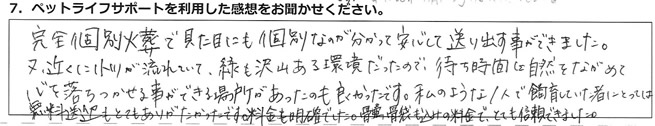 7. ペットライフサポートを利用した感想をお聞かせください。
完全個別火葬で見た目にも個別なのが分かって安心して送り出す事ができました。
又、近くに川が流れていて、緑も沢山ある環境だったので、待ち時間は自然をながめて
心を落ちつかせる事ができる場所があったのも良かったです。私のような1人で飼育していた者にとっては
無料送迎もとてもありがたかったです。料金も明確でした。骨壷、骨袋も込みの料金で、とても信頼できました。